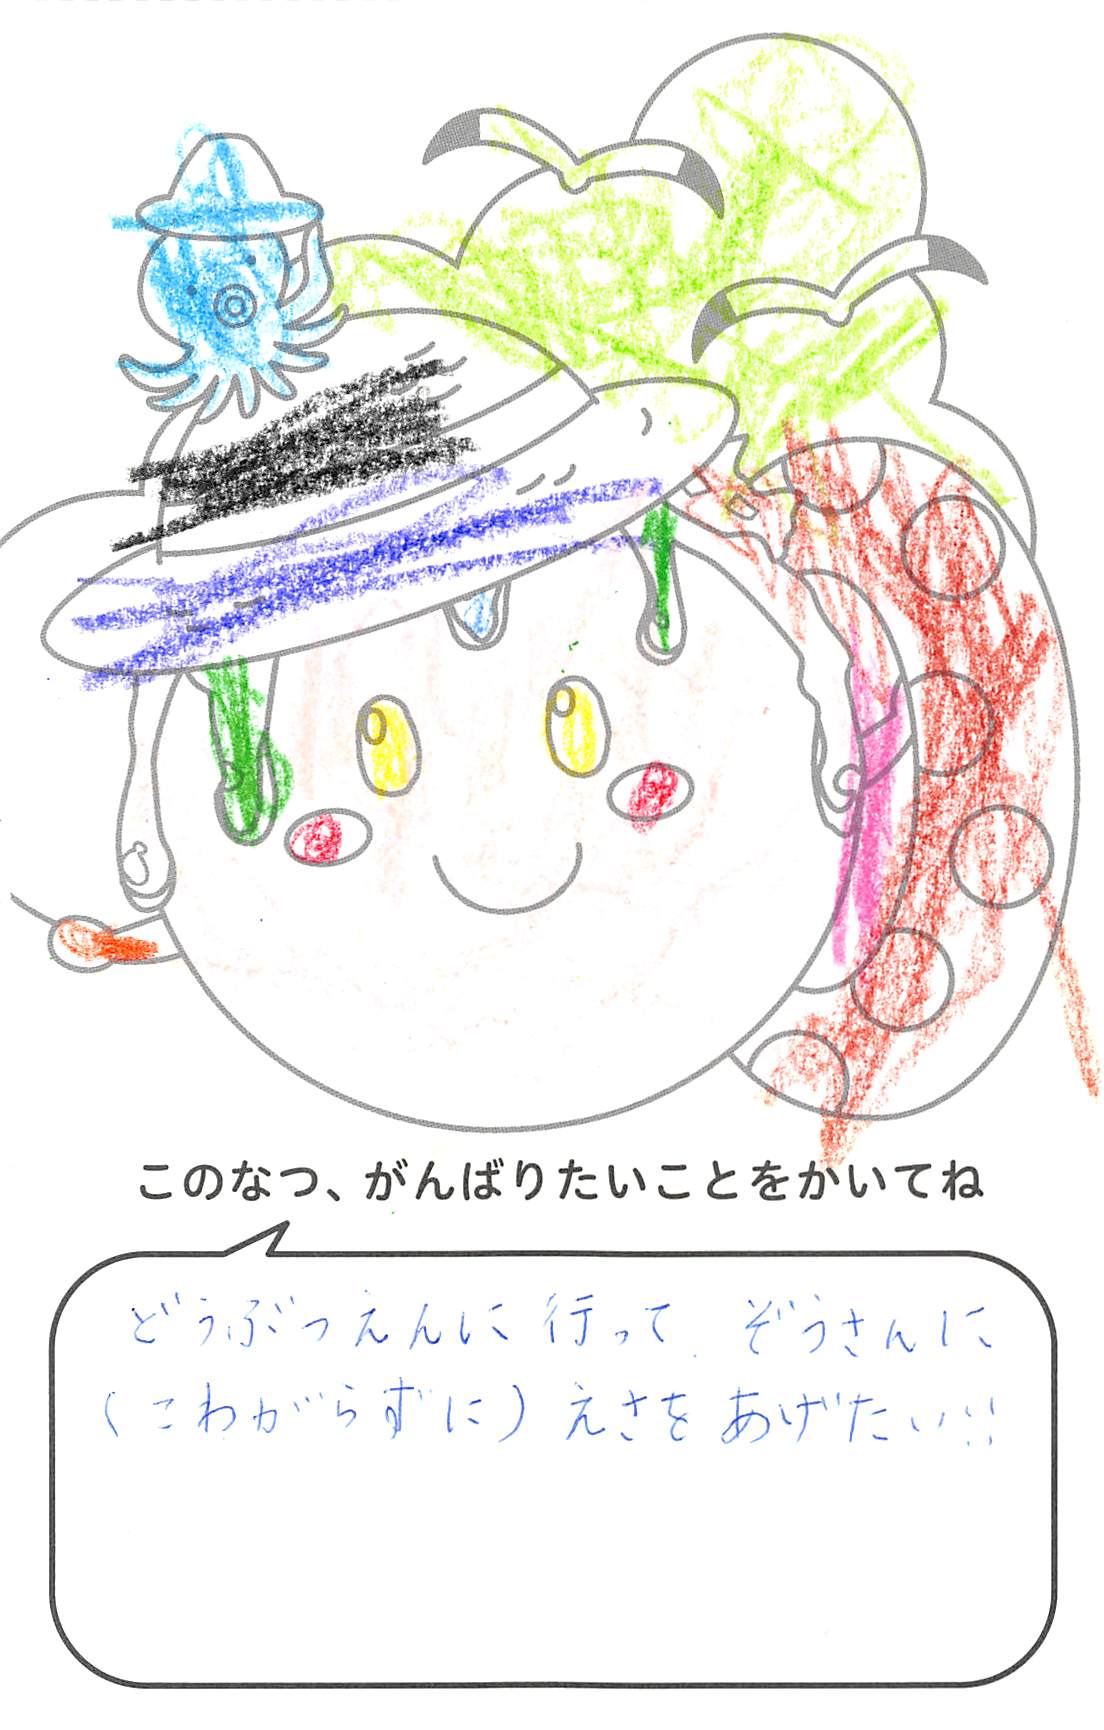 このなつ、がんばりたいことをかいてね
どうぶつえんに行って ぞうさんに
(こわがらずに)えさをあげたい!!